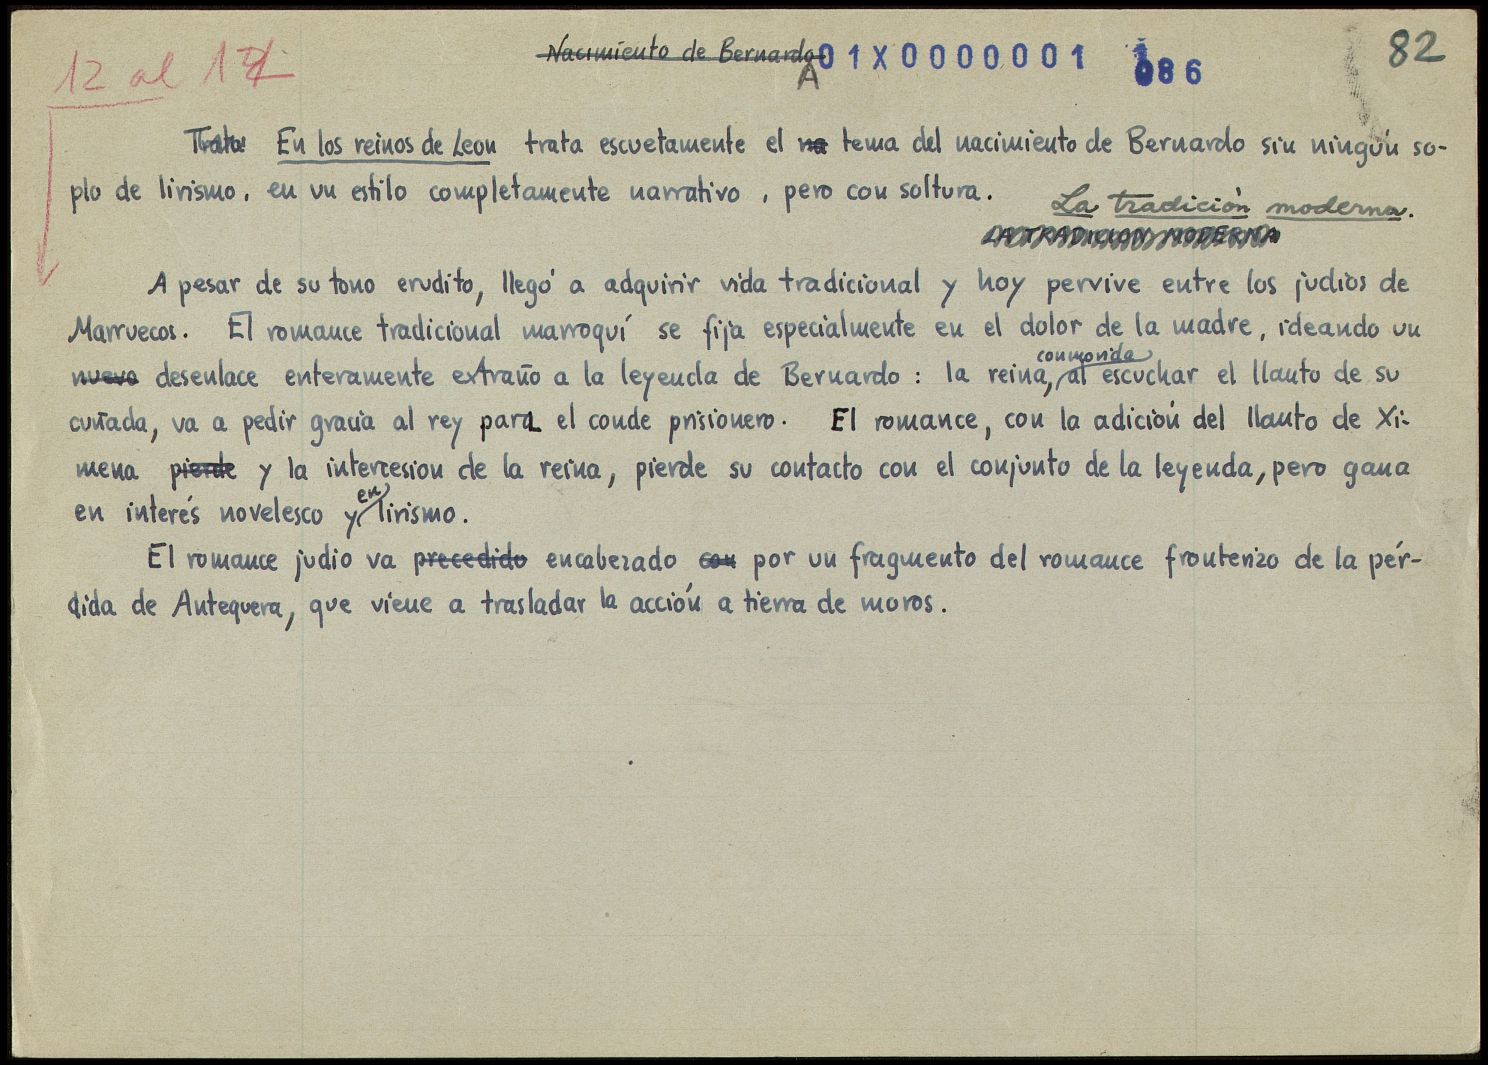 12 al 17
Nacimiento de Bernardo
A01X0000001 086
82
Trata En los reinos de Leon trata escuetamente el na tema del nacimiento de Bernardo sin ningún so-
plo de lirismo, en un estilo completamente narrativo, pero con soltura.
La tradición moderna.
LA TRADICION MODERNA
A pesar de su tono erudito, llegó a adquirir vida tradicional y hoy pervive entre los judíos de
Marruecos. El romance tradicional marroquí se fija especialmente en el dolor de la madre, ideando un
nuevo desenlace enteramente extraño a la leyenda de Bernardo: la reina, conmovida al escuchar el llanto de su
cuñada, va a pedir gracia al rey para el conde prisionero. El romance, con la adición del llanto de Xi-
mena pierde y la intercesion de la reina, pierde su contacto con el conjunto de la leyenda, pero gana
en interés novelesco y en lirismo.
El romance judio va precedido encabezado con por un fragmento del romance fronterizo de la pér-
dida de Antequera, que viene a trasladar la acción a tierra de moros.